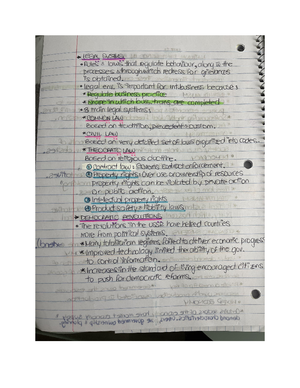 LEGAL SYSTEMS
• Rules & laws that regulate behaviour, along w the
processes through which redress for grievances
is obtained.
• Legal env. is important for int business because:
* Regulate business practice
* Manner in which bus. trans are completed
• 3 main legal systems:
* COMMON LAW
Based on tradition, precedent & custom.
* CIVIL LAW
Based on very detailed set of laws organized into codes.
* THEOCRATIC LAW
Based on religious doctrine.
① Contract laws: contract enforcement.
② Property rights: over use & ownership of resources
Property rights can be violated by private action
or public action.
③ Intellectual property rights
④ Product safety & liability laws
DEMOCRATIC REVOLUTIONS
• The revolutions in the USSR have helped countries
move from political systems.
* Many totalitarian regimes failed to deliver economic progress
* Improved technology limited the ability of the gov
to control information.
* Increases in the standard of living encouraged citizens
to push for democratic reforms.